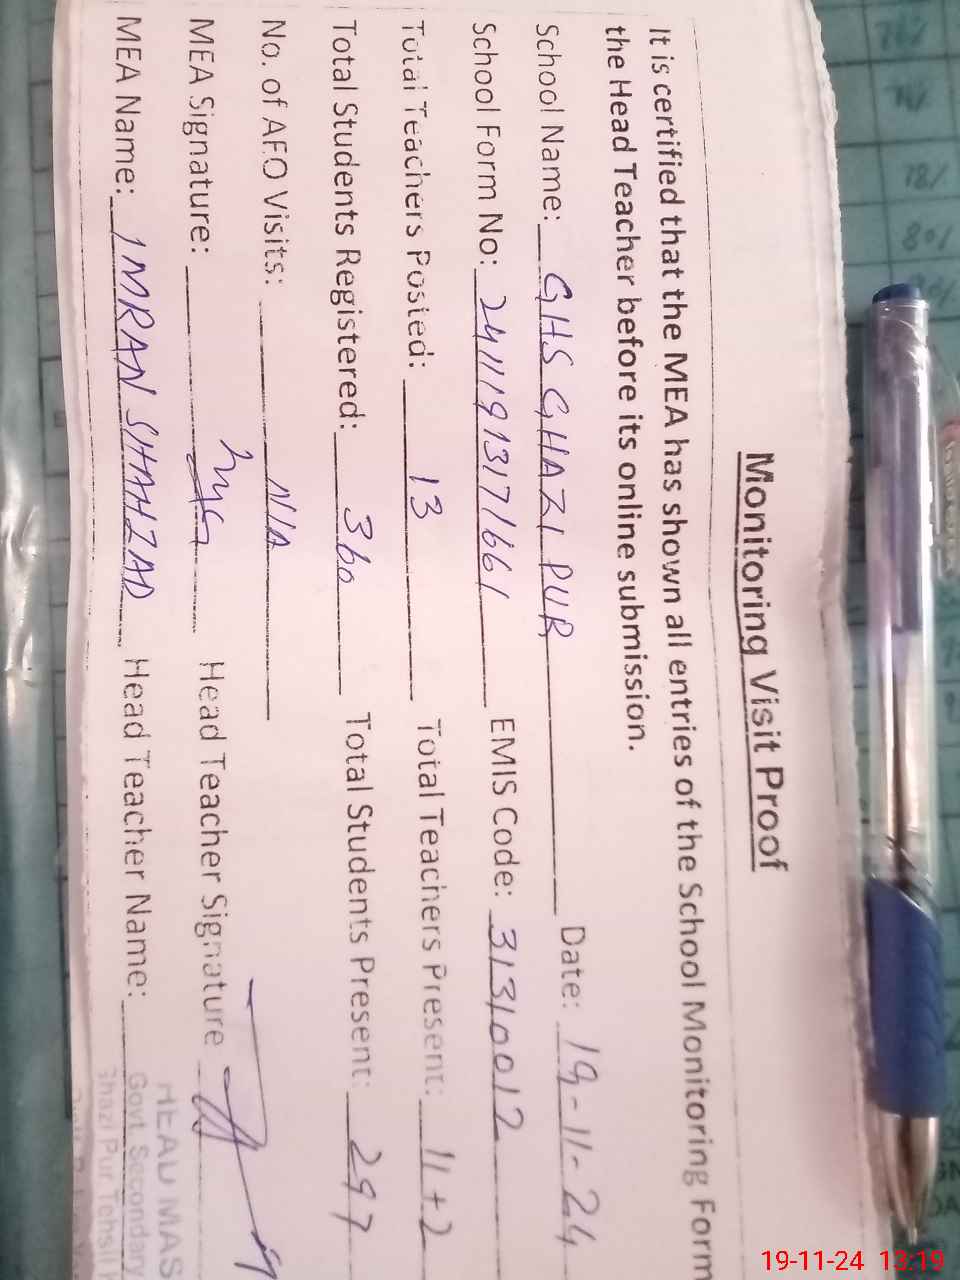 Monitoring Visit Proof
It is certified that the MEA has shown all entries of the School Monitoring Form
the Head Teacher before its online submission.
School Name: GHS GHAZI PUR Date: 19-11-24
School Form No: 24111913171661 EMIS Code: 31310012
Total Teachers Posted: 13 Total Teachers Present: 11+2
Total Students Registered: 360 Total Students Present: 297
No. of AFO Visits: N/A
MEA Signature: Head Teacher Signature
MEA Name: IMRAN SHAHZAD Head Teacher Name:
HEAD MAS
Govt. Secondary
Ghazi Pur Tehsil
19-11-24 13:19